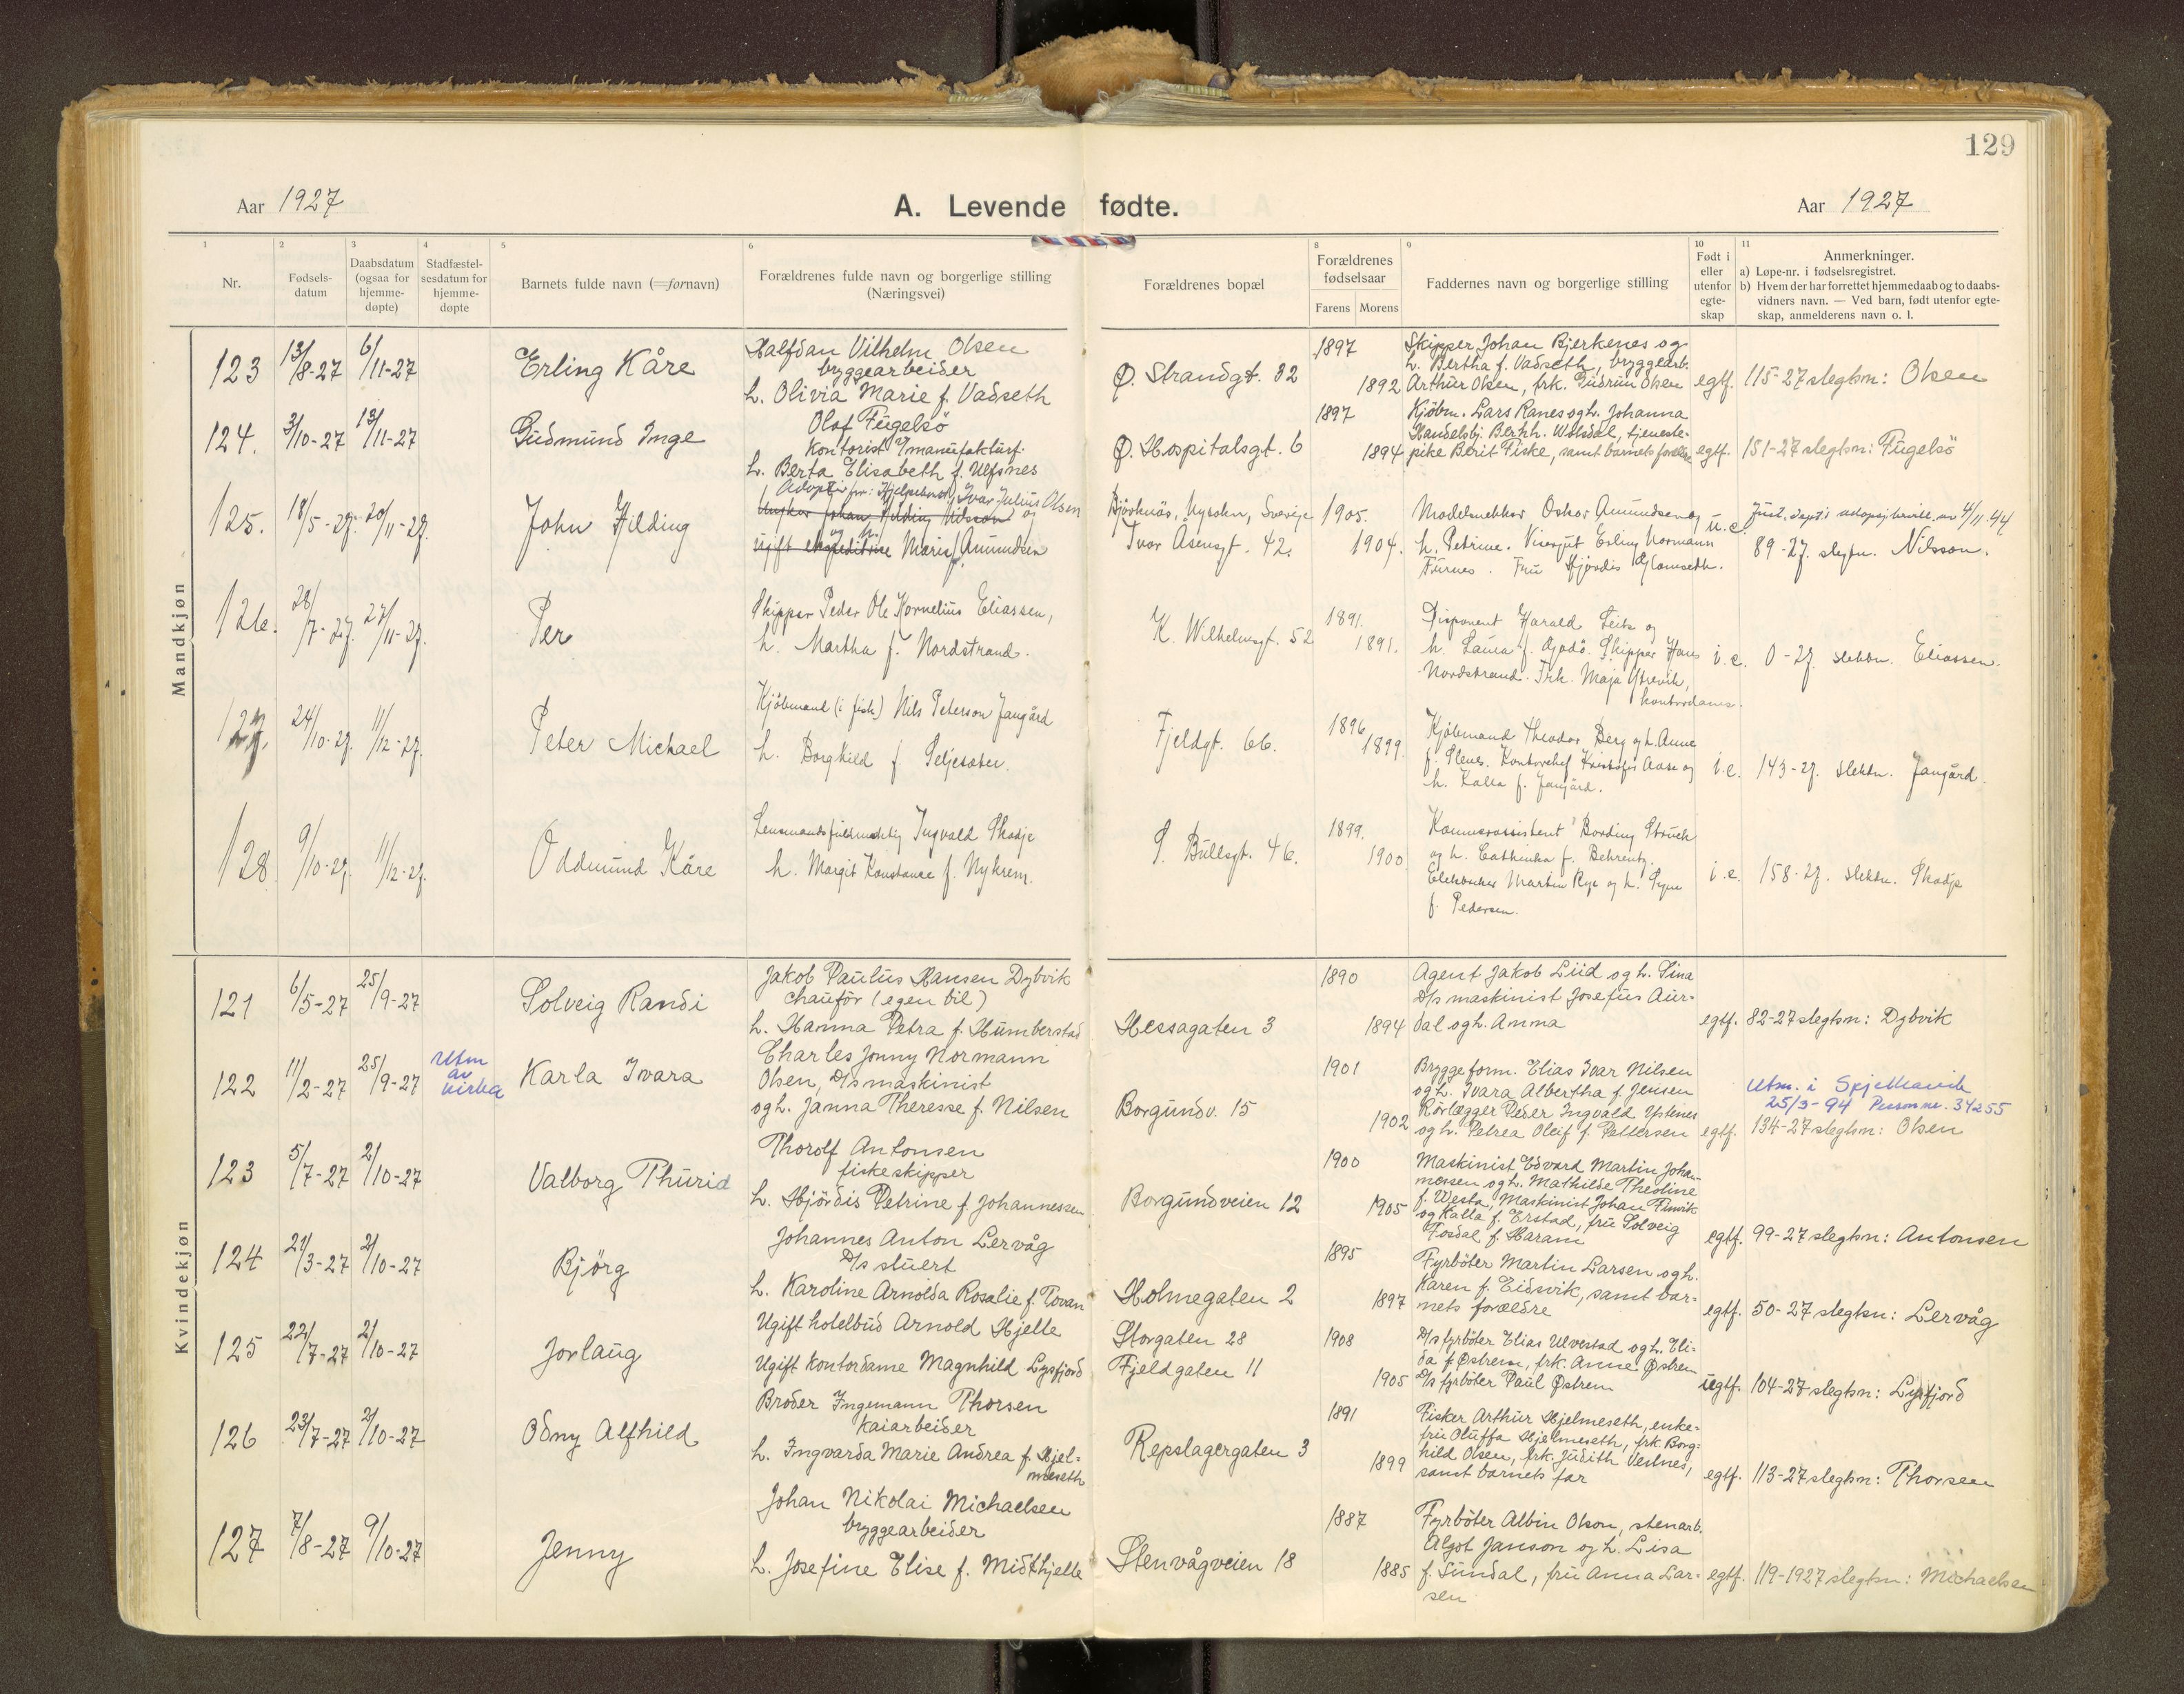 129
Aar 1927
A. Levende fødte.
Aar 1927
1 2 3 4 5 6 8 9 10 11
Nr.
Fødsels-
datum
Daabsdatum
(ogsaa for
hjemme-
døpte)
Stadfæstel-
sesdatum for
hjemme-
døpte
Barnets fulde navn (=fornavn)
Forældrenes fulde navn og borgerlige stilling
(Næringsvei)
Forældrenes bopæl
Forældrenes
fødselsaar
Farens Morens
Faddernes navn og borgerlige stilling
Født i
eller
utenfor
egte-
skap
Anmerkninger.
a) Løpe-nr. i fødselsregistret.
b) Hvem der har forrettet hjemmedaab og to daabs-
vidners navn. — Ved barn, født utenfor egte-
skap, anmelderens navn o. l.
Mandkjøn
123 13/8-27 6/11-27 Erling Kåre
Halfdan Vilhelm Olsen
bryggearbeider
h. Olivia Marie f. Vadseth
Ø. Strandgt. 32
1897
1892
Skipper Johan Bjerkenes og
h. Bertha f. Vadseth, bryggearb.
Arthur Olsen, frk. Gudrun Olsen
egtf. 115-27 slegtsn: Olsen
124. 3/10-27 13/11-27 Gudmund Inge
Olaf Fugelsö
Kontorist i manufakturf.
h. Berta Elisabeth f. Ulfsnes
Ø. Hospitalsgt. 6
1897
1894
Kjöbm. Lars Ranes og h. Johanna
Handelsbj. Bernh. Wolsdal, tjeneste-
pike Berit Fiske, samt barnets forældre
egtf. 151-27 slegtsn: Fugelsö
125. 18/5-27. 20/11-27. John Hilding
Adoptivfor: Hjelpe Ivar Julius Olsen
Ungkar Johan Hilding Nilsson og
Ugift ekspeditrise Marie f. Amundsen
Björknäs, Sverige
Ivar Åsensgt. 42.
1905.
1904.
Modelsnekker Oskar Amundsen og
h. Petrine. Visergut Erling Normann
Furnes. Fru Hjørdis
u.e. Just. dept.s adopsjbevill. av 4/11.44
89-27. slegtn. Nilsson.
126. 28/7-27. 27/11-27. Per
Skipper Peder Ole Kornelius Eliassen,
h. Martha f. Nordstrand.
K. Wilhelmsgt. 52
1891.
1891.
Disponent Harald Seitz og
h. Laura f. Gjødø. Skipper Hans
Nordstrand. Frk. Maja Ytrevik,
kontordame.
i.e. 0-27. slektn. Eliassen.
127. 24/10-27. 11/12-27. Peter Michael
Kjöbmand (i fisk) Nils Peterson Jangård
h. Borghild f Seljesæter.
Fjeldgt. 66.
1896
1899.
Kjöbmand Theodor Berg og h. Anne
f. Stenes. Kontorchef Kristofer Aase og
h. Kalla f. Jangård.
i.e. 143-27. slektn. Jangård.
128. 9/10-27. 11/12-27. Oddmund Kåre
Lensmandsfuldmektig Ingvald Skodje
h. Margit Konstanse f. Nykrem.
S. Bullsgt. 46.
1899.
1900
Kæmnerassistent Bording Struck
og h. Cathinka f. Behrentz.
Elektriker Martin Rye og h. Signe
f. Pedersen.
i.e. 158-27. slektn. Skodje
Kvindekjøn
121 6/5-27 25/9-27 Solveig Randi
Jakob Paulus Hansen Dybvik
chauför (egen bil)
h. Hanna Petra f. Humberstad
Hessagaten 3
1890
1894
Agent Jakob Liid og h. Sina
D/s maskinist Josefus Aur-
dal og h. Anna
egtf. 82-27 slegtsn: Dybvik
122 11/2-27 25/9-27
Utm
av
kirka
Karla Ivara
Charles Jonny Normann
Olsen, D/s maskinist
og h. Janna Theresse f. Nilsen
Borgundv. 15
1901
1902
Bryggeform. Elias Ivar Nilsen
og h. Ivara Albertha f. Jensen
Rörlægger Peder Ingvald Ystenes
og h. Petrea Oleif f. Pettersen
Utm. i Spjelkavik
25/3-94 Personnr. 34255
egtf. 134-27 slegtsn: Olsen
123 5/7-27 2/10-27 Valborg Thurid
Thorolf Antonsen
fiskeskipper
h. Hjördis Petrine f. Johannessen
Borgundveien 12
1900
1905
Maskinist Edvard Martin Johan-
nessen og h. Mathilde Theoline
f. Westa, Maskinist Johan Furvik
og Kalla f. Erstad, fru Solveig
Fosdal f. Haram
egtf. 99-27 slegtsn: Antonsen
124 21/3-27 2/10-27 Bjørg
Johannes Anton Lervåg
D/s stuert
h. Karoline Arnolda Rosalie f. Tovan
Holmegaten 2
1895
1897
Fyrböter Martin Larsen og h.
Karen f. Eidsvik, samt bar-
nets forældre
egtf. 50-27 slegtsn: Lervåg
125 22/7-27 2/10-27 Jorlaug
Ugift hotelbud Arnold Hjelle
Ugift Kontordame Magnhild Lysfjord
Storgaten 28
Fjeldgaten 11
1908
1905
D/s fyrböter Elias Ulvestad og h. Eli-
da f. Østrem, frk. Anne Østrem
D/s fyrböter Paul Østrem
uegtf. 104-27 slegtsn: Lysfjord
126 23/7-27 2/10-27 Odny Alfhild
Broder Ingemann Thorsen
kaiarbeider
h. Ingvarda Marie Andrea f. Hjel-
meseth
Repslagergaten 3
1891
1899
Fisker Arthur Hjelmeseth, enke-
fru Oluffa Hjelmeseth, frk. Borg-
hild Olsen, frk. Judith Vestnes,
samt barnets far
egtf. 113-27 slegtsn: Thorsen
127 7/8-27 9/10-27 Jenny
Johan Nikolai Michaelsen
bryggearbeider
h. Josefine Elise f. Midthjelle
Stenvågveien 18
1887
1885
Fyrböter Albin Olson, stenarb.
Algot Janson og h. Lisa
f. Sundal, fru Anna Lar-
sen
egtf. 119-1927 slegtsn: Michaelsen